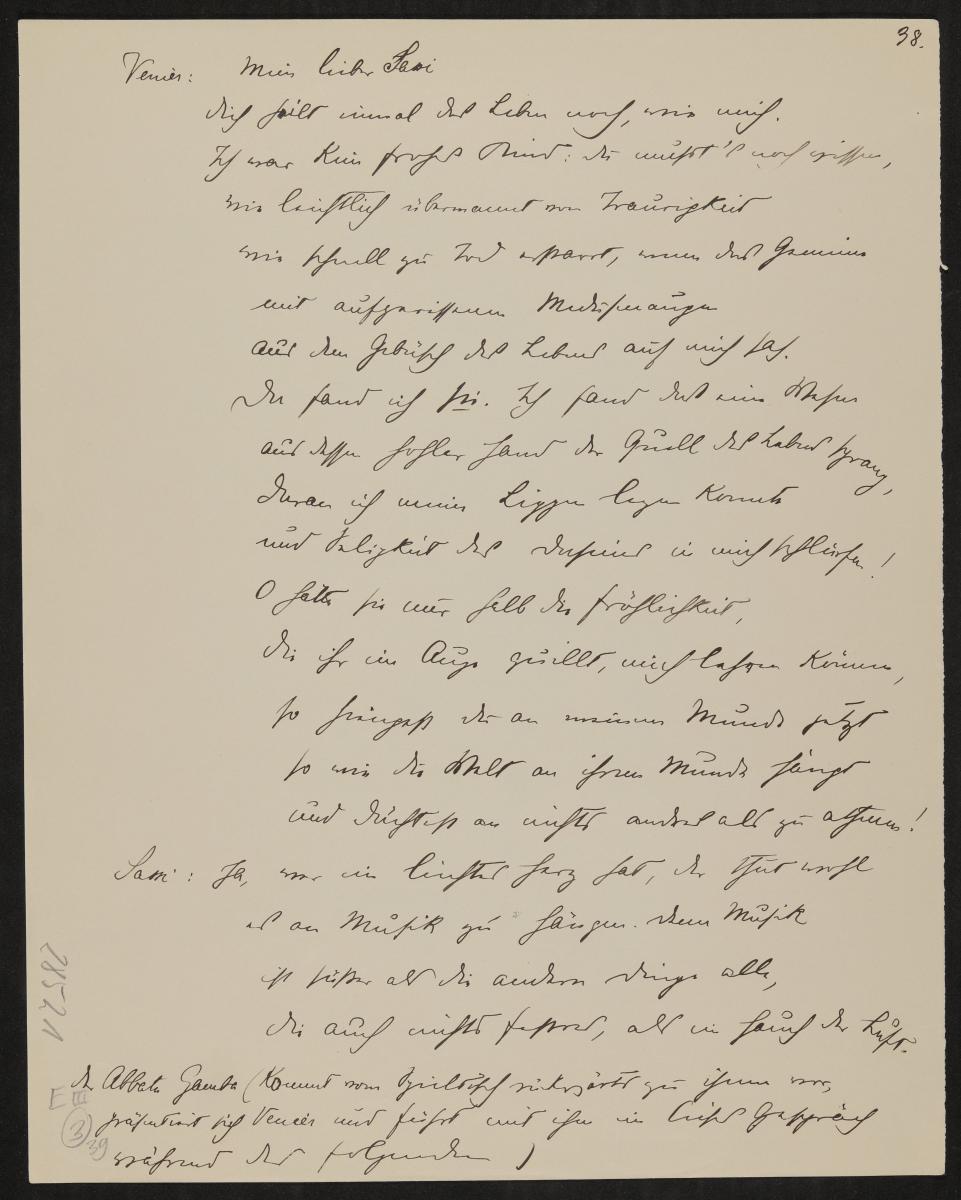 38.
Venier: Mein lieber Sassi
dich heilt einmal das Leben noch, wie mich.
Ich war kein frohes Kind: du mußt's noch wissen,
wie leichtlich übermannt von Traurigkeit
wie schnell zu Tod erstarrt, wenn das Gemeine
mit aufgerissenen Medusenaugen
aus dem Gebüsch des Lebens auf mich sah.
Da fand ich sie. Ich fand das eine Wesen
aus dessen hohler Hand der Quell des Lebens sprang,
daran ich meine Lippen legen konnte
und Seligkeit des Daseins in mich schlürfen!
O hätte sie nur halb die Fröhlichkeit,
die ihr im Auge quillt, mich lehren können,
so hiengest du an meinem Munde jetzt
so wie die Welt an ihrem Munde hängt
und dächtest an nichts andres als zu athmen!
Sassi: Ja, wer ein leichtes Herz hat, der thut wohl
es an Musik zu hängen. denn Musik
ist süßer als die andern Dinge alle,
die auch nichts festres, als ein Hauch der Luft.
der Abbate Gamba (kommt vom Spieltisch rückwärts zu ihnen vor,
präsentiert sich Venier und führt mit ihm ein leises Gespräch
während des folgenden)
28521
E III
3
39